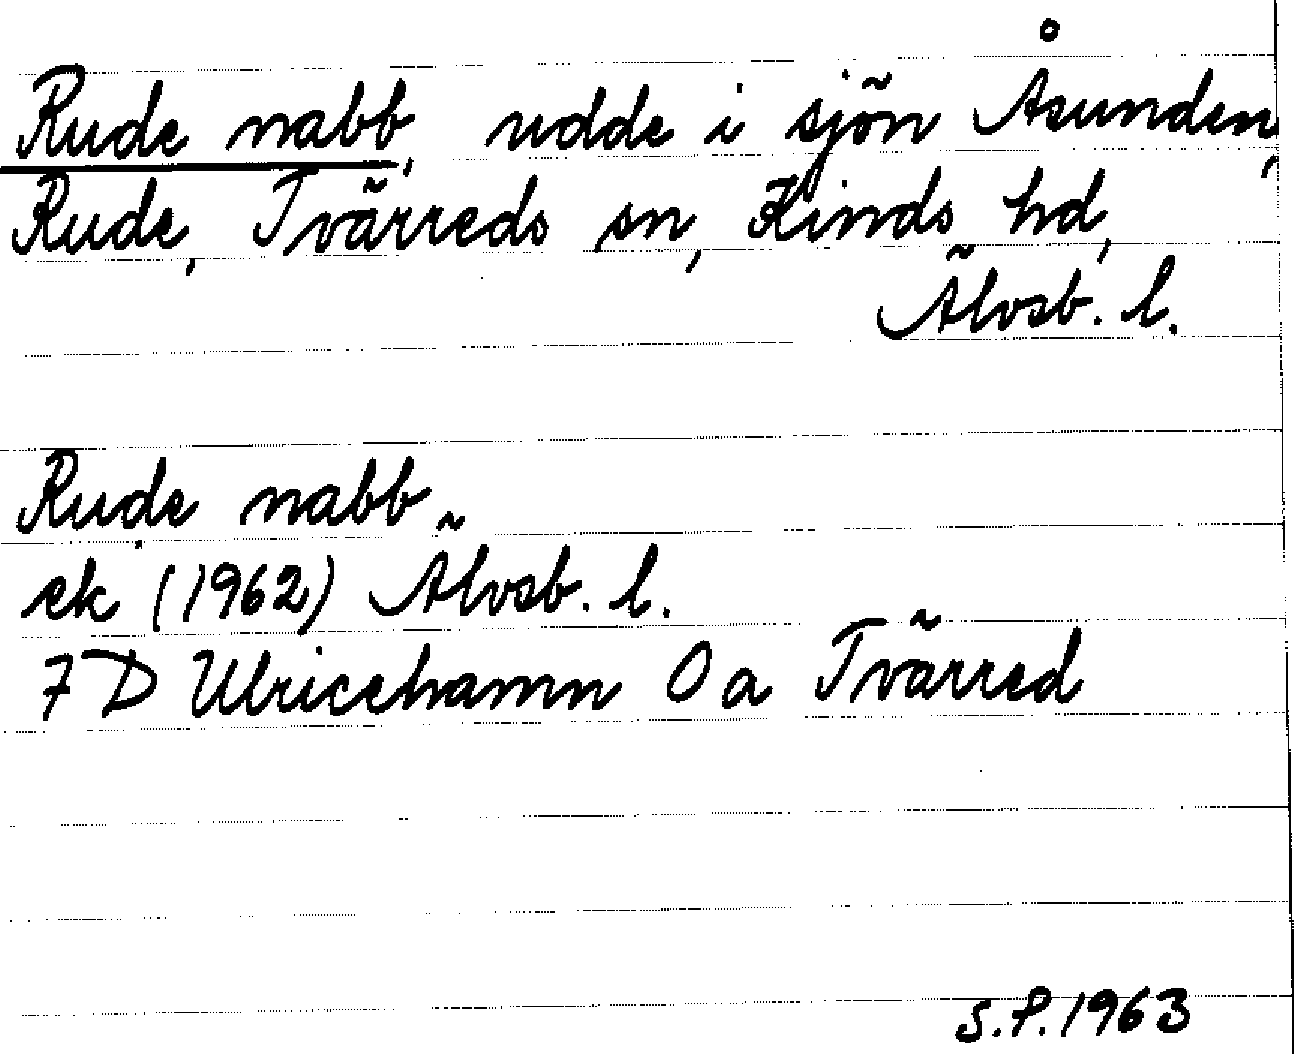 Rude nabb, udde i sjön Åsunden,
Rude, Tvärreds sn, Kinds hd,
Älvsb. l.
Rude nabb
ek (1962) Älvsb. l.
7D Ulricehamn 0a Tvärred
S.P. 1963